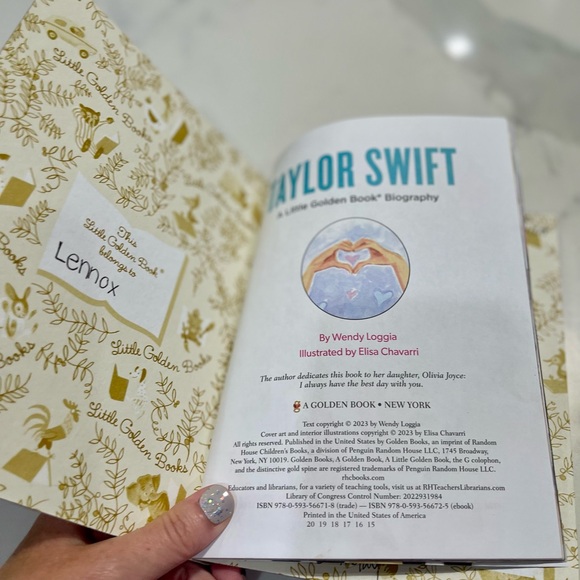 Little Golden Books
This
Little Golden Book®
belongs to
Lennox
Books
Little Golden Books
Books
Little Golden Books
Books
TAYLOR SWIFT
A Little Golden Book® Biography
By Wendy Loggia
Illustrated by Elisa Chavarri
The author dedicates this book to her daughter, Olivia Joyce:
I always have the best day with you.
A GOLDEN BOOK • NEW YORK
Text copyright © 2023 by Wendy Loggia
Cover art and interior illustrations copyright © 2023 by Elisa Chavarri
All rights reserved. Published in the United States by Golden Books, an imprint of Random
House Children's Books, a division of Penguin Random House LLC, 1745 Broadway,
New York, NY 10019. Golden Books, A Golden Book, A Little Golden Book, the G colophon,
and the distinctive gold spine are registered trademarks of Penguin Random House LLC.
rhcbooks.com
Educators and librarians, for a variety of teaching tools, visit us at RHTeachersLibrarians.com
Library of Congress Control Number: 2022931984
ISBN 978-0-593-56671-8 (trade) — ISBN 978-0-593-56672-5 (ebook)
Printed in the United States of America
20 19 18 17 16 15